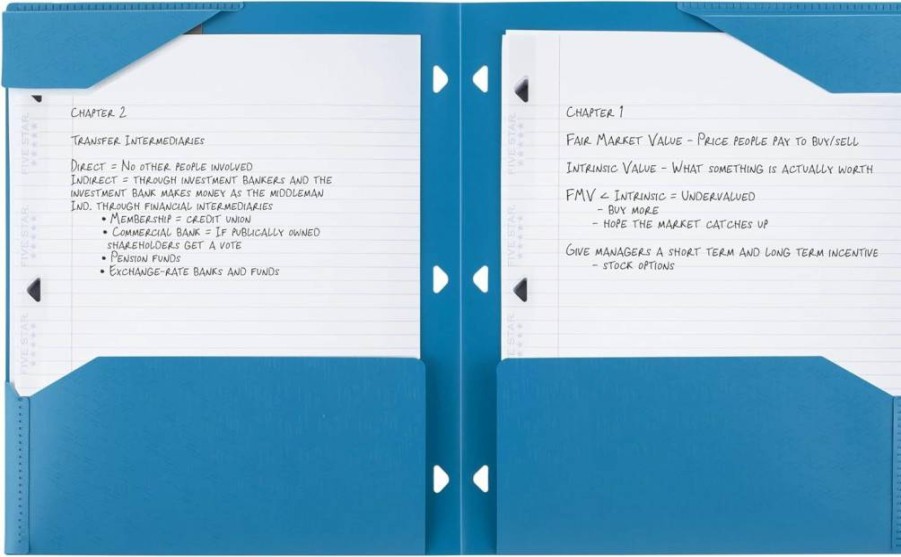 CHAPTER 2
TRANSFER INTERMEDIARIES
DIRECT = NO OTHER PEOPLE INVOLVED
INDIRECT = THROUGH INVESTMENT BANKERS AND THE
INVESTMENT BANK MAKES MONEY AS THE MIDDLEMAN
IND. THROUGH FINANCIAL INTERMEDIARIES
• MEMBERSHIP = CREDIT UNION
• COMMERCIAL BANK = IF PUBLICALLY OWNED
SHAREHOLDERS GET A VOTE
• PENSION FUNDS
• EXCHANGE-RATE BANKS AND FUNDS
FIVE STAR
FIVE STAR
FIVE STAR
CHAPTER 1
FAIR MARKET VALUE - PRICE PEOPLE PAY TO BUY/SELL
INTRINSIC VALUE - WHAT SOMETHING IS ACTUALLY WORTH
FMV < INTRINSIC = UNDERVALUED
- BUY MORE
- HOPE THE MARKET CATCHES UP
GIVE MANAGERS A SHORT TERM AND LONG TERM INCENTIVE
- STOCK OPTIONS
FIVE STAR
FIVE STAR